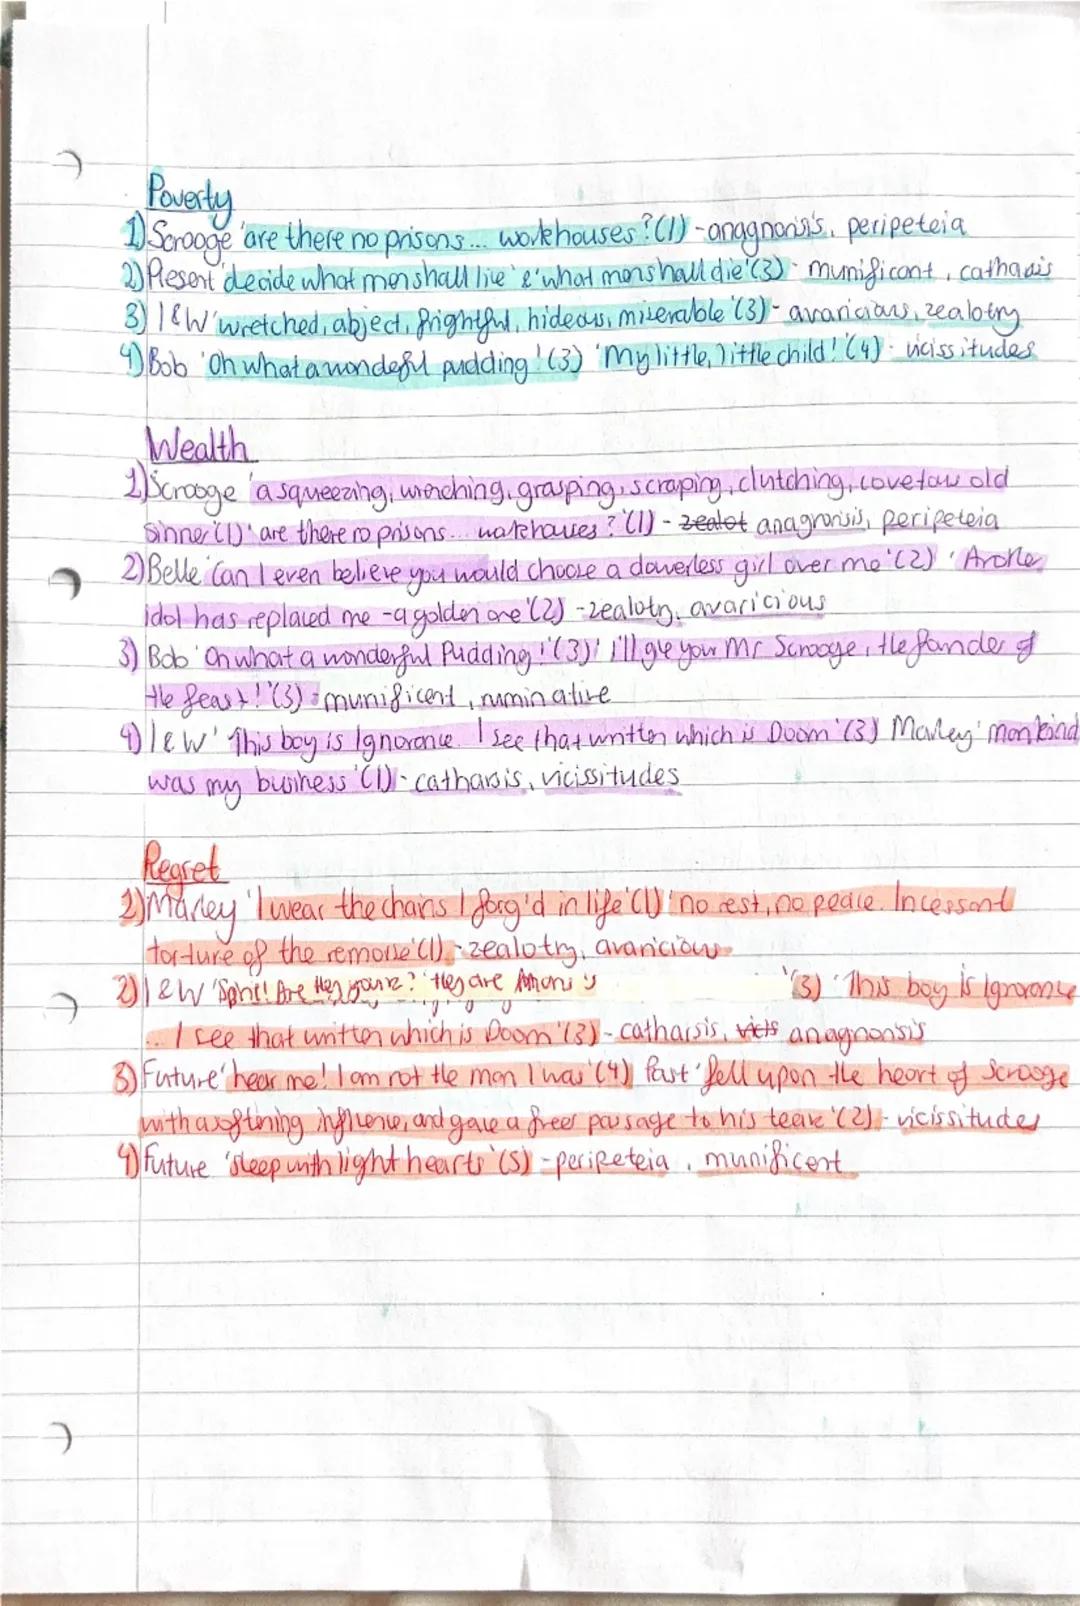 Poverty
1) Scrooge 'are there no prisons... workhouses?'(1) - anagnorisis, peripeteia
2) Present 'decide what men shall live' & 'what men shall die'(3) - munificent, catharsis
3) I&W 'wretched, abject, frightful, hideous, miserable'(3) - avaricious, zealotry
4) Bob 'Oh what a wonderful pudding!'(3) 'My little, little child!'(4) - vicissitudes
Wealth
1) Scrooge 'a squeezing, wrenching, grasping, scraping, clutching, covetous old
sinner'(1) 'are there no prisons... workhouses?'(1) - zealot anagnorisis, peripeteia
2) Belle 'Can I even believe you would choose a dowerless girl over me'(2) 'Another
idol has replaced me - a golden one'(2) - zealotry, avaricious
3) Bob 'Oh what a wonderful Pudding!'(3) 'I'll give you Mr Scrooge, the founder of
the feast!'(3) - munificent, ruminative
4) I&W 'This boy is Ignorance. I see that written which is Doom'(3) Marley 'mankind
was my business'(1) - catharsis, vicissitudes
Regret
1) Marley 'I wear the chains I forg'd in life'(1) 'no rest, no peace. Incessant
torture of the remorse'(1) - zealotry, avaricious
2) I&W 'Spirit! Are they yours?' 'they are '(3) 'This boy is Ignorance
... I see that written which is Doom'(3) - catharsis, anagnorisis
3) Future 'hear me! I am not the man I was'(4) Past 'fell upon the heart of Scrooge
with a softining influence, and gave a freer passage to his tears'(2) - vicissitudes
4) Future 'sleep with light hearts'(5) - peripeteia, munificent